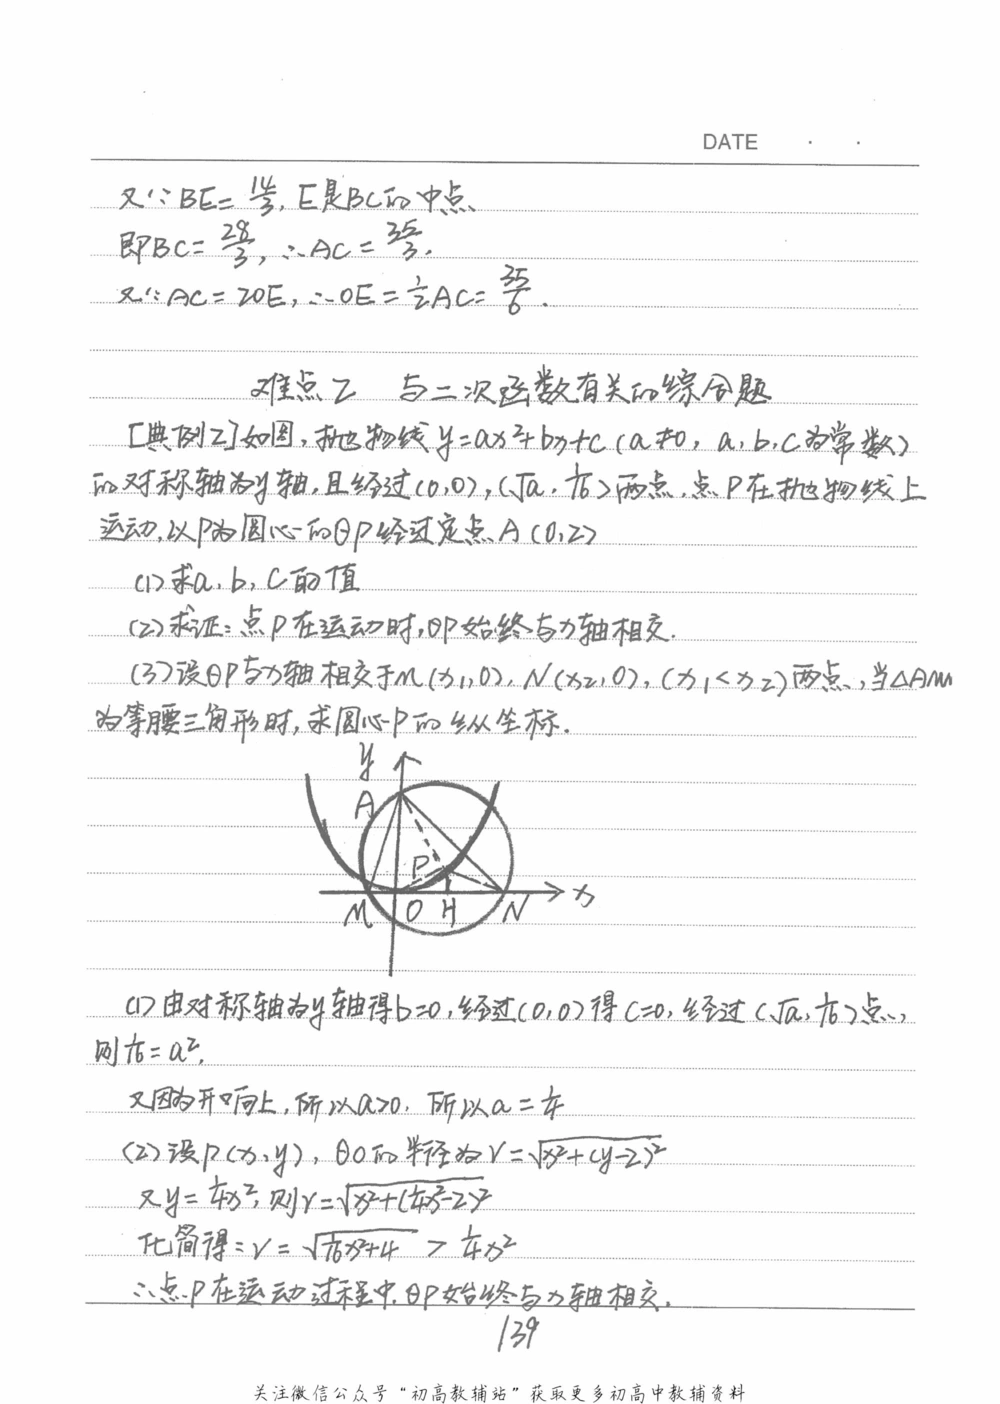 DATE · ·
又∵BE=14/3, E是BC的中点
即BC=28/3, ∴AC=35/3.
又∵AC=2OE, ∴OE=1/2AC=35/6.
难点2 与二次函数有关的综合题
[典例2]如图,抛物线y=ax²+bx+c(a≠0, a,b,c为常数)
的对称轴为y轴,且经过(0,0),(√a,1/16)两点,点P在抛物线上
运动,以P为圆心的⊙P经过定点A(0,2)
(1)求a,b,c的值
(2)求证:点P在运动时,⊙P始终与x轴相交.
(3)设⊙P与x轴相交于M(x₁,0),N(x₂,0),(x₁<x₂)两点,当△AM
为等腰三角形时,求圆心P的纵坐标.
y
A
P
M O H N x
(1)由对称轴为y轴得b=0,经过(0,0)得c=0,经过(√a,1/16)点,
则1/16=a².
又因为开口向上,所以a>0,所以a=1/4
(2)设P(x,y),⊙O的半径为r=√x²+(y-2)²
又y=1/4x²,则r=√x²+(1/4x²-2)²
化简得:r=√1/16x²+4 > 1/4x²
∴点P在运动过程中,⊙P始终与x轴相交.
139
关注微信公众号“初高教辅站”获取更多初高中教辅资料